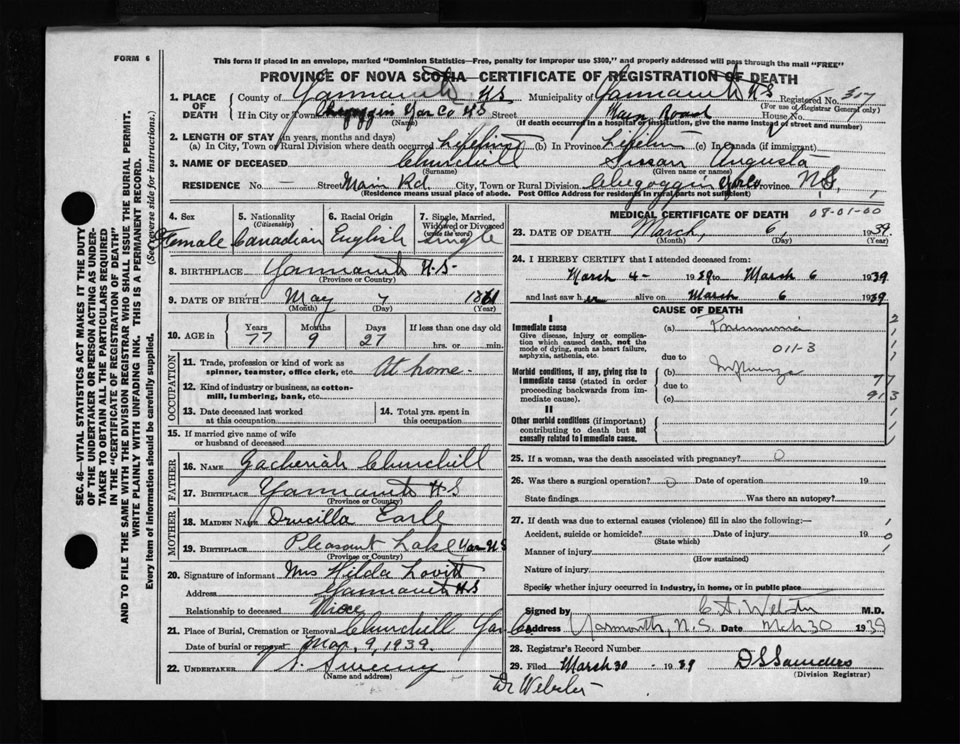 FORM 6
This form if placed in an envelope, marked "Dominion Statistics—Free, penalty for improper use $300," and properly addressed will pass through the mail "FREE"
PROVINCE OF NOVA SCOTIA—CERTIFICATE OF REGISTRATION OF DEATH
1. PLACE OF DEATH County of Yarmouth N.S Municipality of Yarmouth N.S Registered No. 317
(For use of Registrar General only)
If in City or Town Chegoggin Yar Co N.S Street Main Road House No.
(Name) (If death occurred in a hospital or institution, give the name instead of street and number)
2. LENGTH OF STAY (in years, months and days)
(a) In City, Town or Rural Division where death occurred Lifetime (b) In Province Lifetime (c) In Canada (if immigrant)
3. NAME OF DECEASED Churchill Susan Augusta
(Surname) (Given name or names)
RESIDENCE No. — Street Main Rd. City, Town or Rural Division Chegoggin Yar Co Province N.S.
(Residence means usual place of abode. Post Office Address for residents in rural parts not sufficient)
4. Sex Female
5. Nationality (Citizenship) Canadian
6. Racial Origin English
7. Single, Married, Widowed or Divorced (write the word) Single
8. BIRTHPLACE Yarmouth N.S.
(Province or Country)
9. DATE OF BIRTH May 7 1861
(Month) (Day) (Year)
10. AGE in Years 77 Months 9 Days 27 If less than one day old hrs. or min.
OCCUPATION
11. Trade, profession or kind of work as spinner, teamster, office clerk, etc. At home.
12. Kind of industry or business, as cotton-mill, lumbering, bank, etc.
13. Date deceased last worked at this occupation
14. Total yrs. spent in this occupation
15. If married give name of wife or husband of deceased
FATHER
16. NAME Zacheriah Churchill
17. BIRTHPLACE Yarmouth N.S
(Province or Country)
MOTHER
18. MAIDEN NAME Drucilla Earle
19. BIRTHPLACE Pleasant Lake Yar N.S
(Province or Country)
20. Signature of informant Mrs Hilda Lovitt
Address Yarmouth N.S
Relationship to deceased Niece
21. Place of Burial, Cremation or Removal Churchill Yar Co
Date of burial or removal Mar, 9, 1939.
22. UNDERTAKER Sweeny
(Name and address)
MEDICAL CERTIFICATE OF DEATH 08-01-00
23. DATE OF DEATH March, 6, 1939.
(Month) (Day) (Year)
24. I HEREBY CERTIFY that I attended deceased from:
March 4- 1939 to March 6 1939
and last saw her alive on March 6 1939
CAUSE OF DEATH
I
Immediate cause
Give disease, injury or complication which caused death, not the mode of dying, such as heart failure, asphyxia, asthenia, etc.
(a) Pneumonia
011-3
due to
Morbid conditions, if any, giving rise to immediate cause (stated in order proceeding backwards from immediate cause).
(b) Influenza
due to
(c)
II
Other morbid conditions (if important) contributing to death but not causally related to immediate cause.
25. If a woman, was the death associated with pregnancy? 0
26. Was there a surgical operation? 0 Date of operation 19
State findings Was there an autopsy?
27. If death was due to external causes (violence) fill in also the following:—
Accident, suicide or homicide? Date of injury 19
(State which)
Manner of injury
(How sustained)
Nature of injury
Specify whether injury occurred in industry, in home, or in public place
Signed by C A Webster M.D.
Address Yarmouth, N.S. Date Mch 30 1939
28. Registrar's Record Number
29. Filed March 30 - 1939 D S Saunders
(Division Registrar)
Dr Webster
SEC. 46—VITAL STATISTICS ACT MAKES IT THE DUTY
OF THE UNDERTAKER OR PERSON ACTING AS UNDER-
TAKER TO OBTAIN ALL THE PARTICULARS REQUIRED
IN THE "CERTIFICATE OF REGISTRATION OF DEATH"
AND TO FILE THE SAME WITH THE DIVISION REGISTRAR WHO SHALL ISSUE THE BURIAL PERMIT.
WRITE PLAINLY WITH UNFADING INK. THIS IS A PERMANENT RECORD.
Every item of information should be carefully supplied. (See reverse side for instructions.)